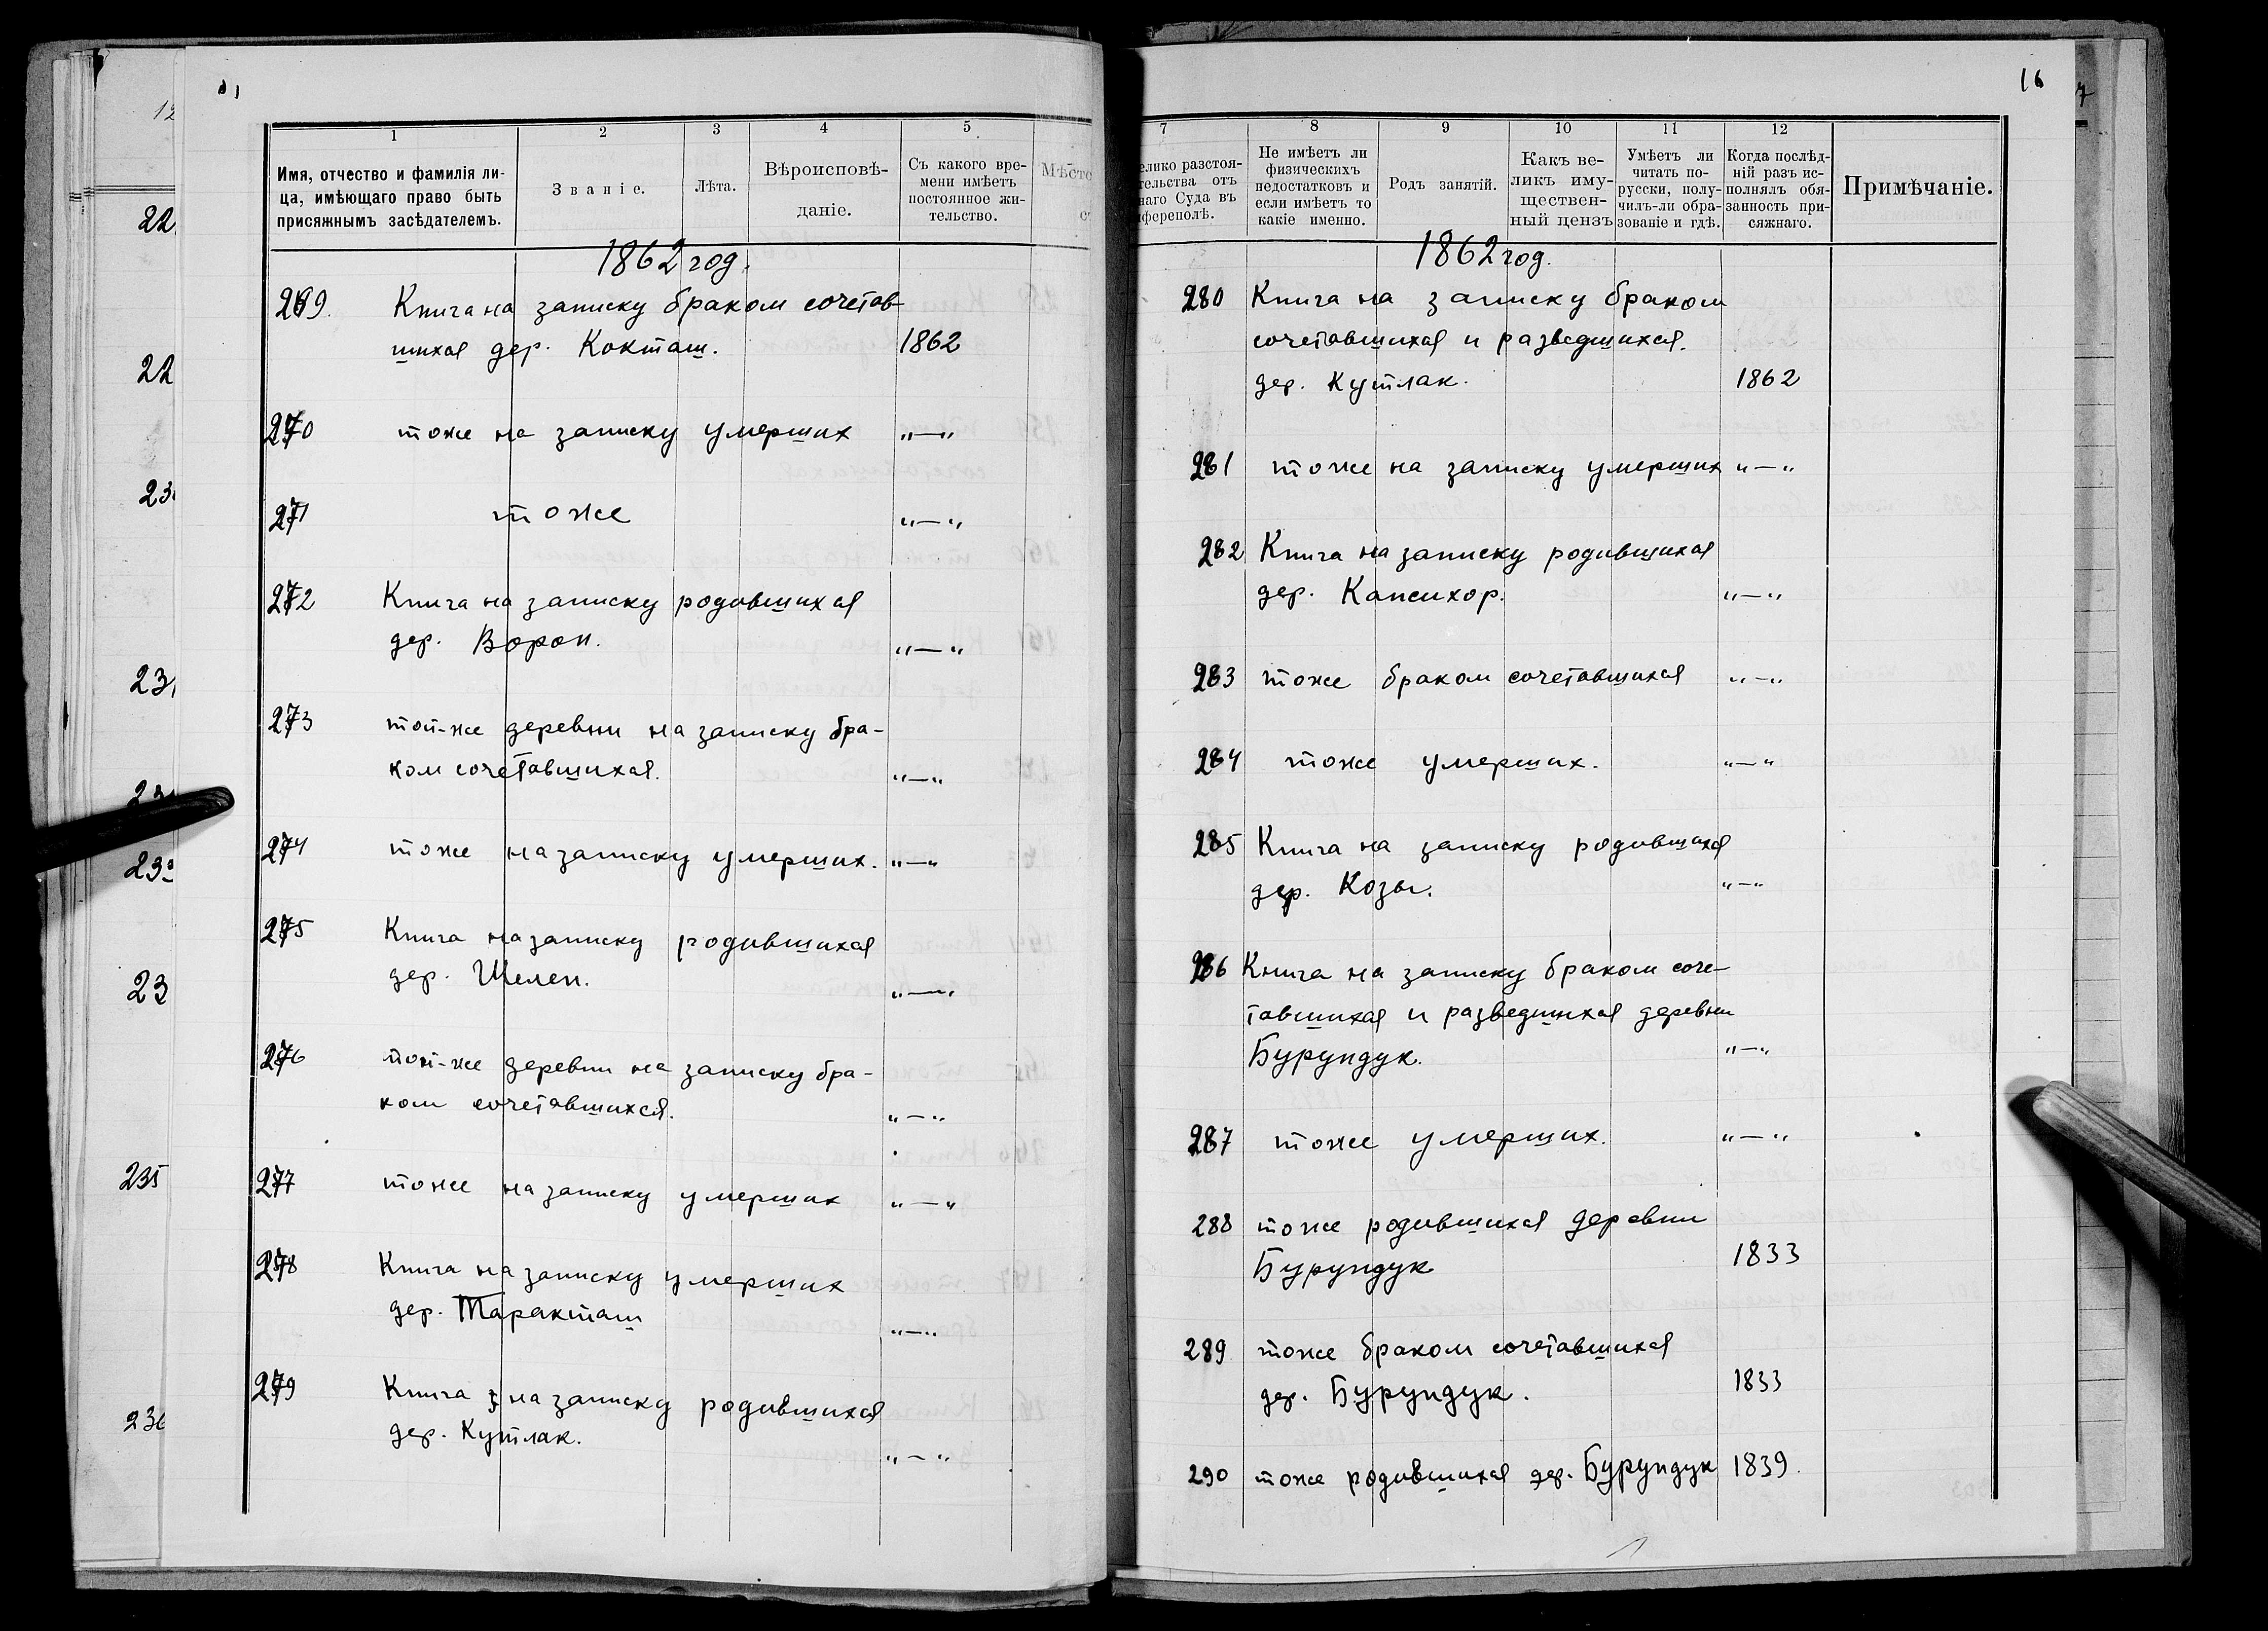 1
2
3
4
5
Имя, отчество и фамилія ли-
ца, имѣющаго право быть
присяжнымъ засѣдателемъ.
Званіе.
Лѣта.
Вѣроисповѣ-
даніе.
Съ какого вре-
мени имѣетъ
постоянное жи-
тельство.
1862 год.
269. Книга на записку браком сочетав-
шихся дер. Кокташ. 1862
270 тоже на записку умерших "—"
271 тоже "—"
272 Книга на записку родившихся
дер. Ворон. "—"
273 той-же деревни на записку бра-
ком сочетавшихся. "—"
274 тоже на записку умерших. "—"
275 Книга на записку родившихся
дер. Шелен. "—"
276 той-же деревни на записку бра-
ком сочетавшихся. "—"
277 тоже на записку умерших "—"
278 Книга на записку умерших
дер. Таракташ "—"
279 Книга на записку родившихся
дер. Кутлак. "—"
22
22
23
23
23
23
235
16
7
8
9
10
11
12
елико разстоя-
тельства отъ
наго Суда въ
ферополѣ.
Не имѣетъ ли
физическихъ
недостатковъ и
если имѣетъ то
какіе именно.
Родъ занятій.
Какъ ве-
ликъ иму-
ществен-
ный цензъ
Умѣетъ ли
читать по-
русски, полу-
чилъ-ли обра-
зованіе и гдѣ.
Когда послѣд-
ній разъ ис-
полнялъ обя-
занность при-
сяжнаго.
Примѣчаніе.
1862 год.
280 Книга на записку браком
сочетавшихся и разведшихся.
дер. Кутлак. 1862
281 тоже на записку умерших "—"
282 Книга на записку родившихся
дер. Капсихор. "—"
283 тоже браком сочетавшихся "—"
284 тоже умерших. "—"
285 Книга на записку родившихся
дер. Козы. "—"
286 Книга на записку браком соче-
тавшихся и разведшихся деревни
Бурундук. "—"
287 тоже умерших. "—"
288 тоже родившихся деревни
Бурундук 1833
289 тоже браком сочетавшихся
дер. Бурундук. 1833
290 тоже родившихся дер. Бурундук 1839.